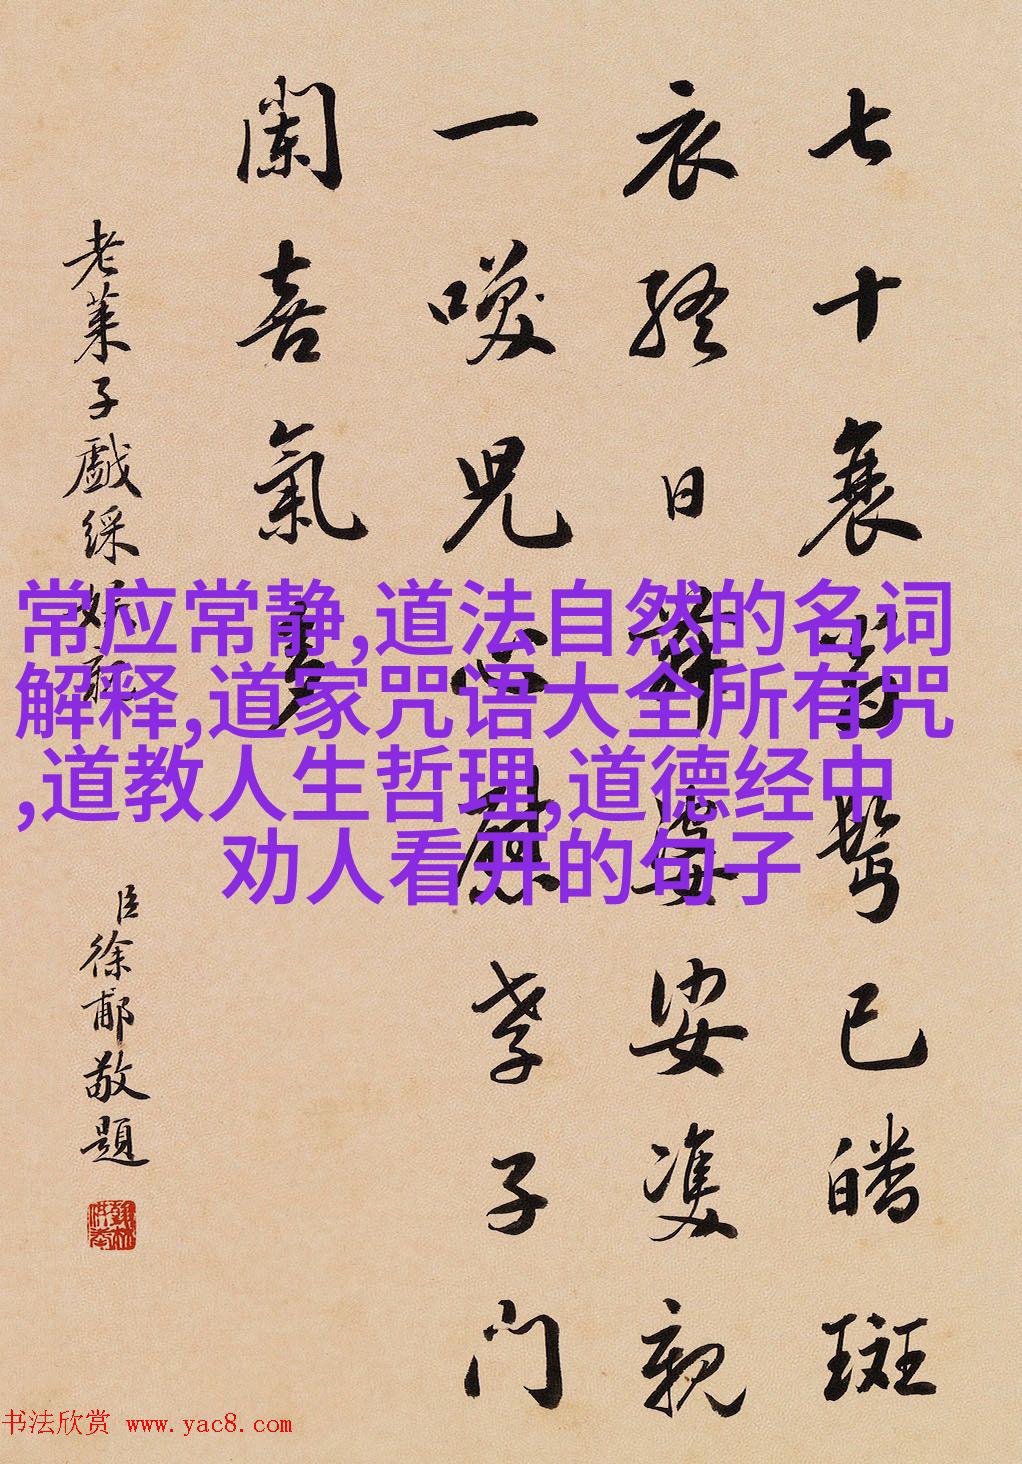 七十衰翁鬓已皤斑
衣终日舞婆娑双亲
一咲儿心慰孝子门
阑喜氣多
老莱子戯綵娱親
臣徐郙敬題
常应常静,道法自然的名词
解释,道家咒语大全所有咒
,道教人生哲理,道德经中
劝人看开的句子
书法欣赏 www.yac8.com